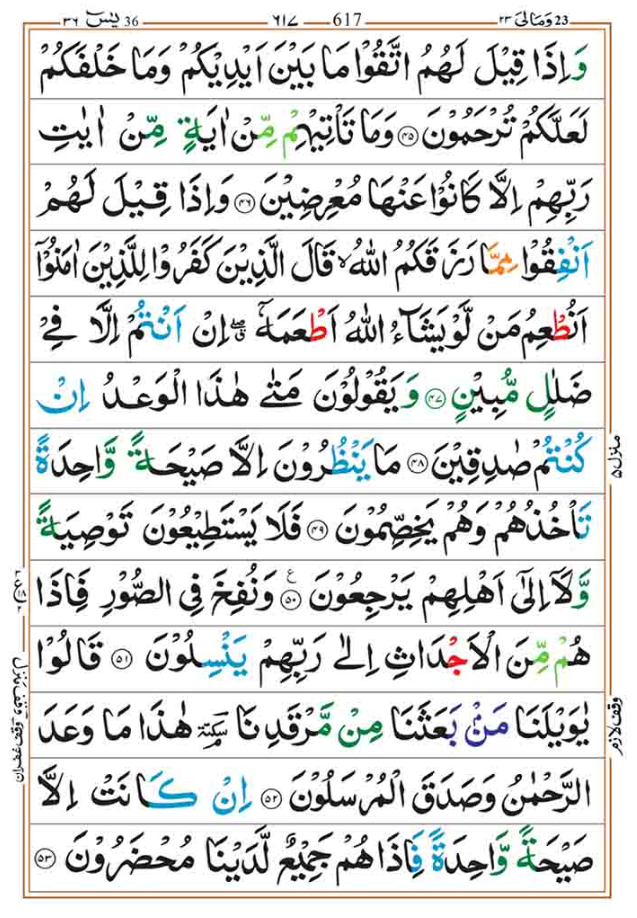 36 یٰسٓ ٣٦ 617 ٦١٧ 23 وَمَالِیَ ٢٣
وَاِذَا قِیْلَ لَهُمُ اتَّقُوْا مَا بَیْنَ اَیْدِیْكُمْ وَمَا خَلْفَكُمْ
لَعَلَّكُمْ تُرْحَمُوْنَ ﴿۴۵﴾ وَمَا تَاْتِیْهِمْ مِّنْ اٰیَةٍ مِّنْ اٰیٰتِ
رَبِّهِمْ اِلَّا كَانُوْا عَنْهَا مُعْرِضِیْنَ ﴿۴۶﴾ وَاِذَا قِیْلَ لَهُمْ
اَنْفِقُوْا مِمَّا رَزَقَكُمُ اللّٰهُ ۙ قَالَ الَّذِیْنَ كَفَرُوْا لِلَّذِیْنَ اٰمَنُوْۤا
اَنُطْعِمُ مَنْ لَّوْ یَشَآءُ اللّٰهُ اَطْعَمَهٗۤ ۖۗ اِنْ اَنْتُمْ اِلَّا فِیْ
ضَلٰلٍ مُّبِیْنٍ ﴿۴۷﴾ وَیَقُوْلُوْنَ مَتٰی هٰذَا الْوَعْدُ اِنْ
كُنْتُمْ صٰدِقِیْنَ ﴿۴۸﴾ مَا یَنْظُرُوْنَ اِلَّا صَیْحَةً وَّاحِدَةً
تَاْخُذُهُمْ وَهُمْ یَخِصِّمُوْنَ ﴿۴۹﴾ فَلَا یَسْتَطِیْعُوْنَ تَوْصِیَةً
وَّلَاۤ اِلٰۤی اَهْلِهِمْ یَرْجِعُوْنَ ﴿۵۰﴾ ع وَنُفِخَ فِی الصُّوْرِ فَاِذَا
هُمْ مِّنَ الْاَجْدَاثِ اِلٰی رَبِّهِمْ یَنْسِلُوْنَ ﴿۵۱﴾ قَالُوْا
یٰوَیْلَنَا مَنْۢ بَعَثَنَا مِنْ مَّرْقَدِنَا ۘ سكتة هٰذَا مَا وَعَدَ
الرَّحْمٰنُ وَصَدَقَ الْمُرْسَلُوْنَ ﴿۵۲﴾ اِنْ كَانَتْ اِلَّا
صَیْحَةً وَّاحِدَةً فَاِذَا هُمْ جَمِیْعٌ لَّدَیْنَا مُحْضَرُوْنَ ﴿۵۳﴾
منزل ۵
وقف لازم
وقف منزل
وقف غفران